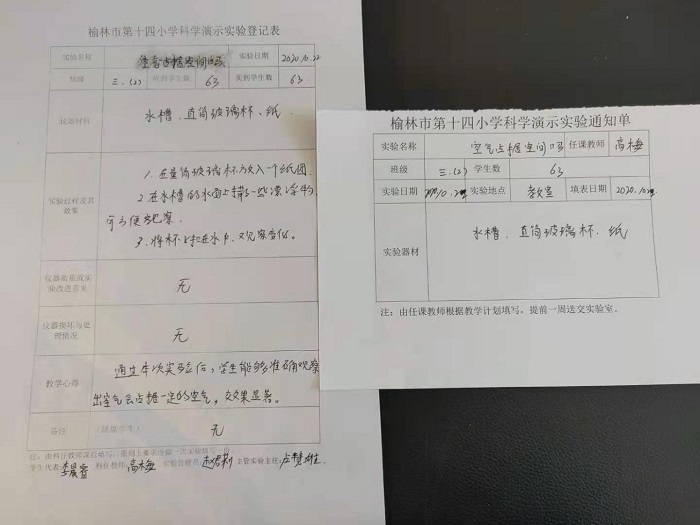 榆林市第十四小学科学演示实验登记表
实验名称 空气占据空间吗 实验日期 2020.10.22
班级 三.(2) 应到学生数 63 实到学生数 63
仪器材料 水槽、直筒玻璃杯、纸
1.在直筒玻璃杯放入一个纸团
2.在水槽的水面上撒一些漂浮物,
实验过程及其效果
可以便于观察.
3.将杯子扣在水中.观察变化。
仪器质量或实验改进意见 无
仪器损坏与处理情况 无
教学心得 通过本次实验后,学生能够准确观察
出空气会占据一定的空气,效果显著。
备注 无
学生代表: 科任教师: 高梅 实验管理员: 主管实验主任:
榆林市第十四小学科学演示实验通知单
实验名称 空气占据空间吗 任课教师 高梅
班级 三.(2) 学生数 63
实验日期 实验地点 教室 填表日期
实验器材 水槽、直筒玻璃杯、纸
注:由任课教师根据教学计划填写,提前一周送交实验室。